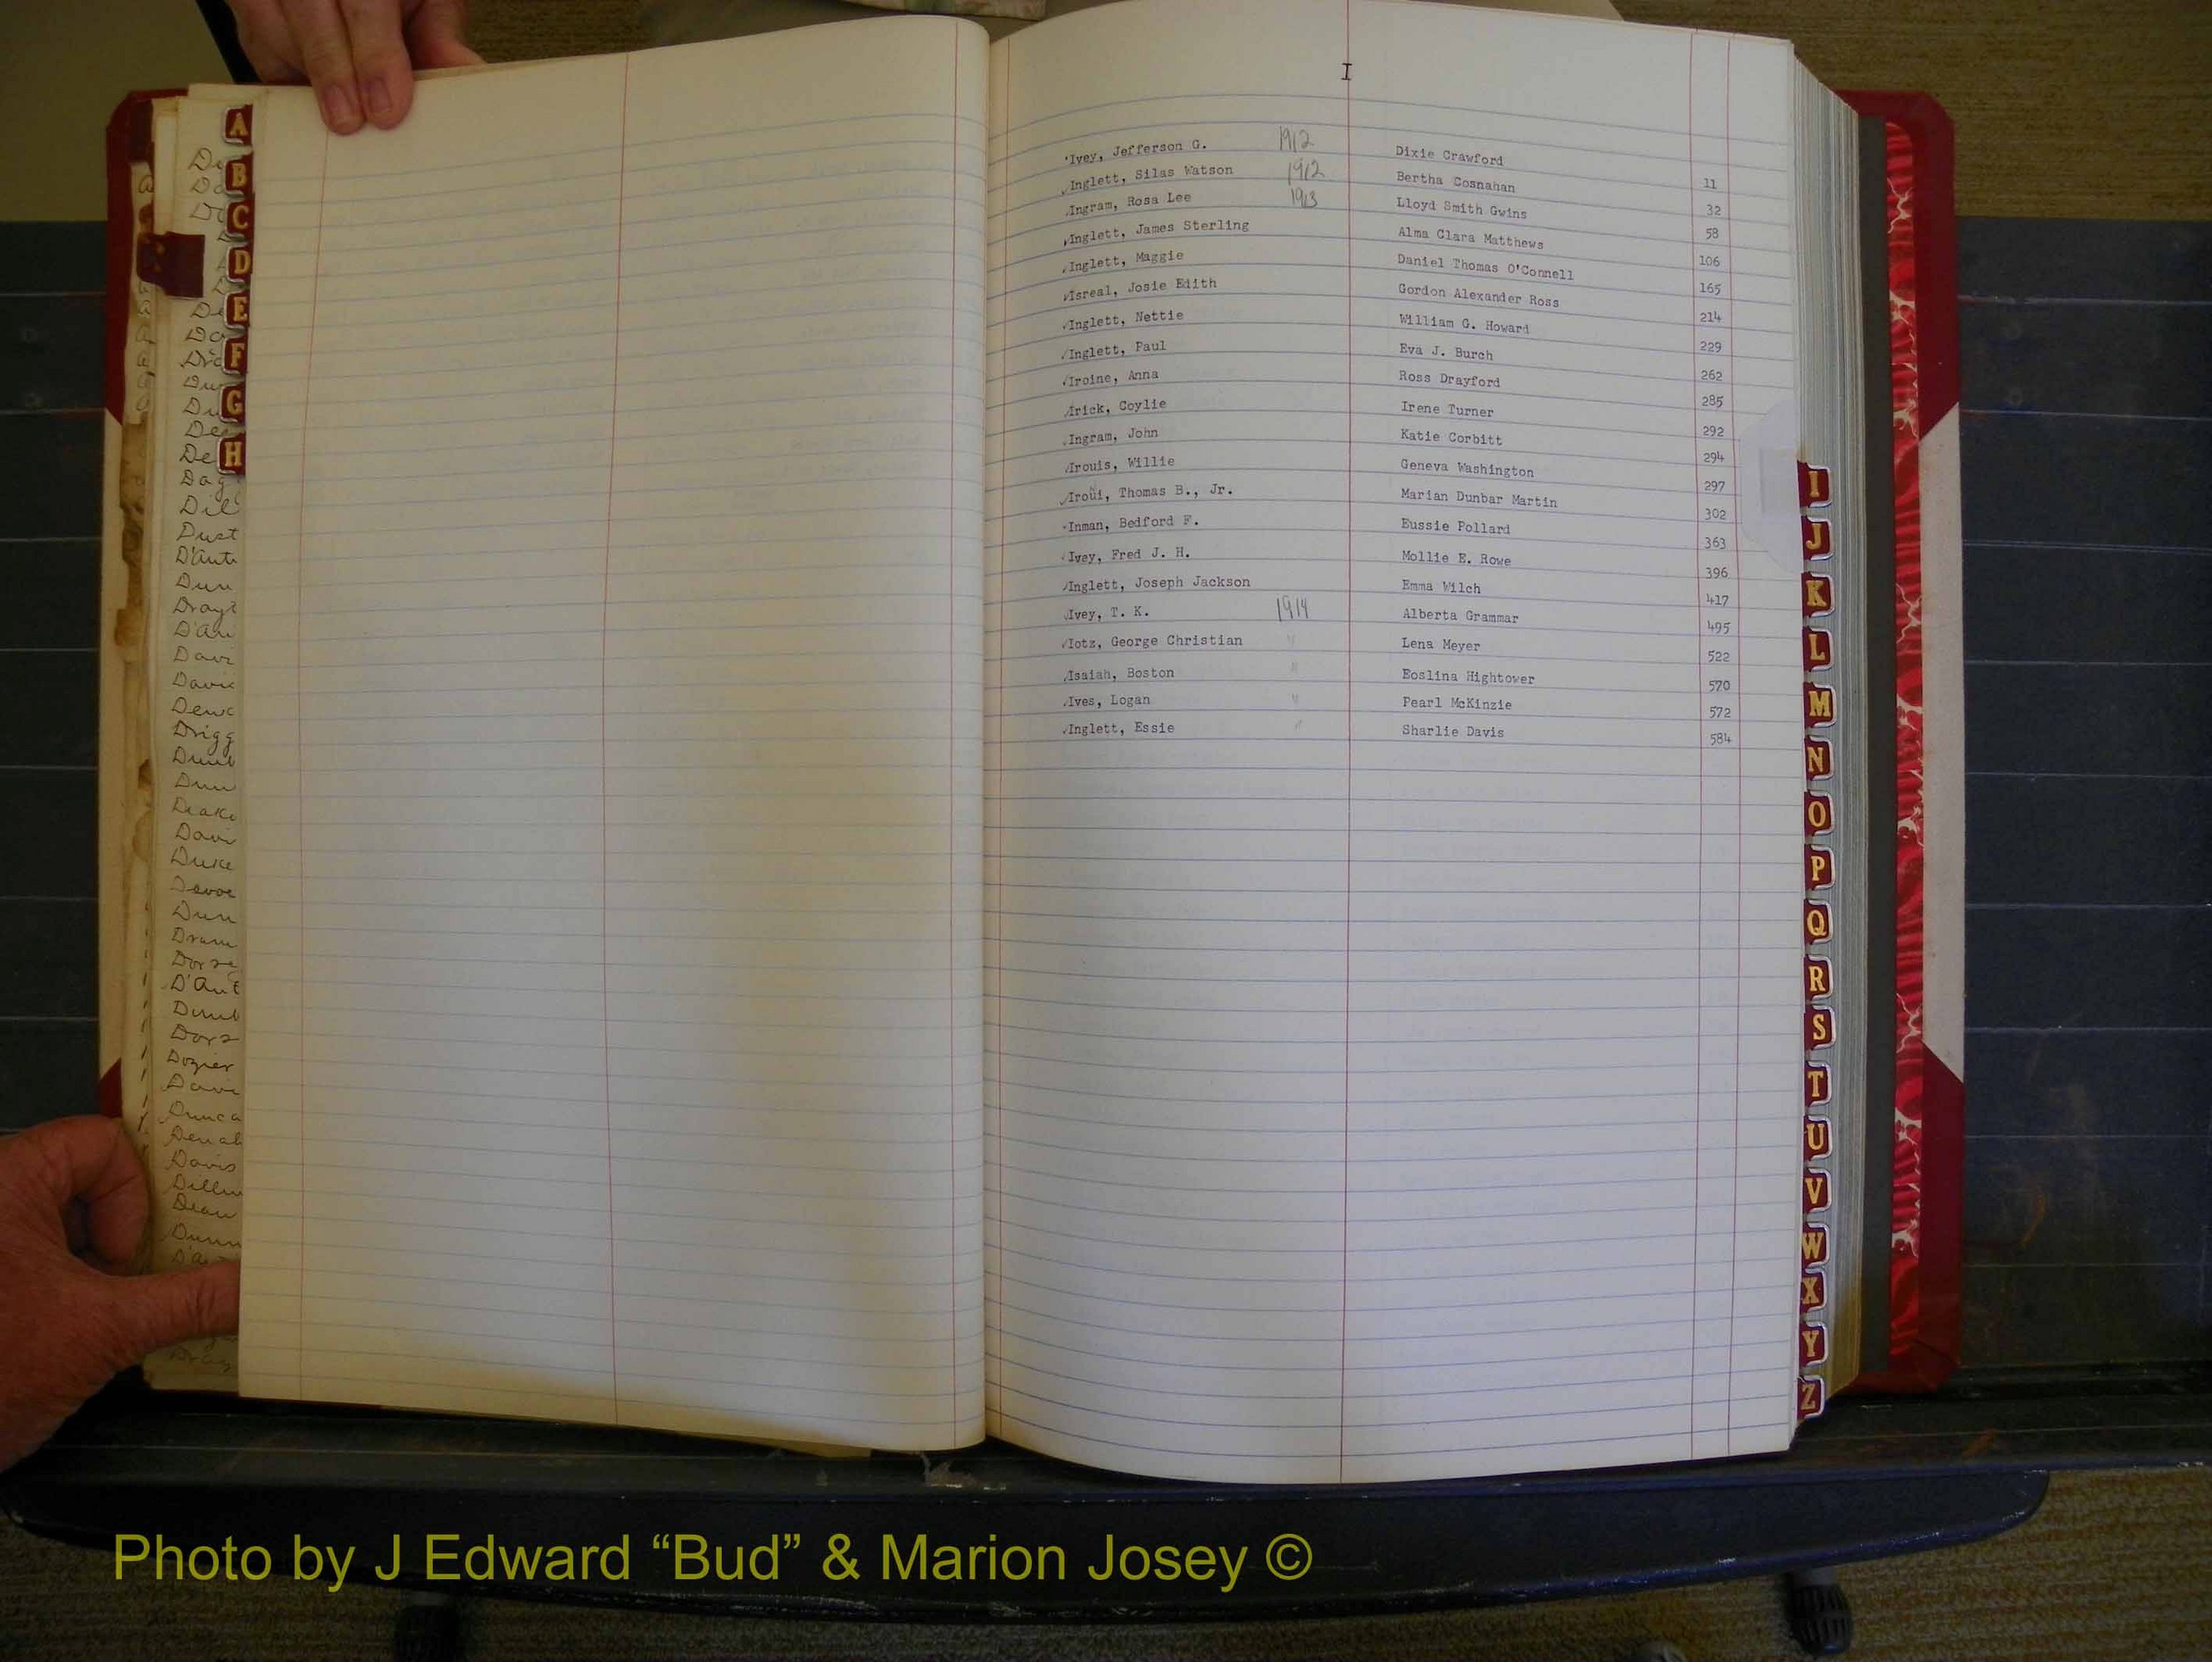 A
B
C
D
E
F
G
H
Dust
Duke
Dozier
Davis
I
Ivey, Jefferson G. 1912 Dixie Crawford 11
Inglett, Silas Watson 1912 Bertha Cosnahan 32
Ingram, Rosa Lee 1913 Lloyd Smith Gwins 58
Inglett, James Sterling Alma Clara Matthews 106
Inglett, Maggie Daniel Thomas O'Connell 165
Isreal, Josie Edith Gordon Alexander Ross 214
Inglett, Nettie William G. Howard 229
Inglett, Paul Eva J. Burch 262
Iroine, Anna Ross Drayford 285
Irick, Coylie Irene Turner 292
Ingram, John Katie Corbitt 294
Irouis, Willie Geneva Washington 297
Iroui, Thomas B., Jr. Marian Dunbar Martin 302
Inman, Bedford F. Eussie Pollard 363
Ivey, Fred J. H. Mollie E. Rowe 396
Inglett, Joseph Jackson Emma Wilch 417
Ivey, T. K. 1914 Alberta Grammar 495
Iotz, George Christian " Lena Meyer 522
Isaiah, Boston " Eoslina Hightower 570
Ives, Logan " Pearl McKinzie 572
Inglett, Essie " Sharlie Davis 584
I
J
K
L
M
N
O
P
Q
R
S
T
U
V
W
X
Y
Z
Photo by J Edward “Bud” & Marion Josey ©